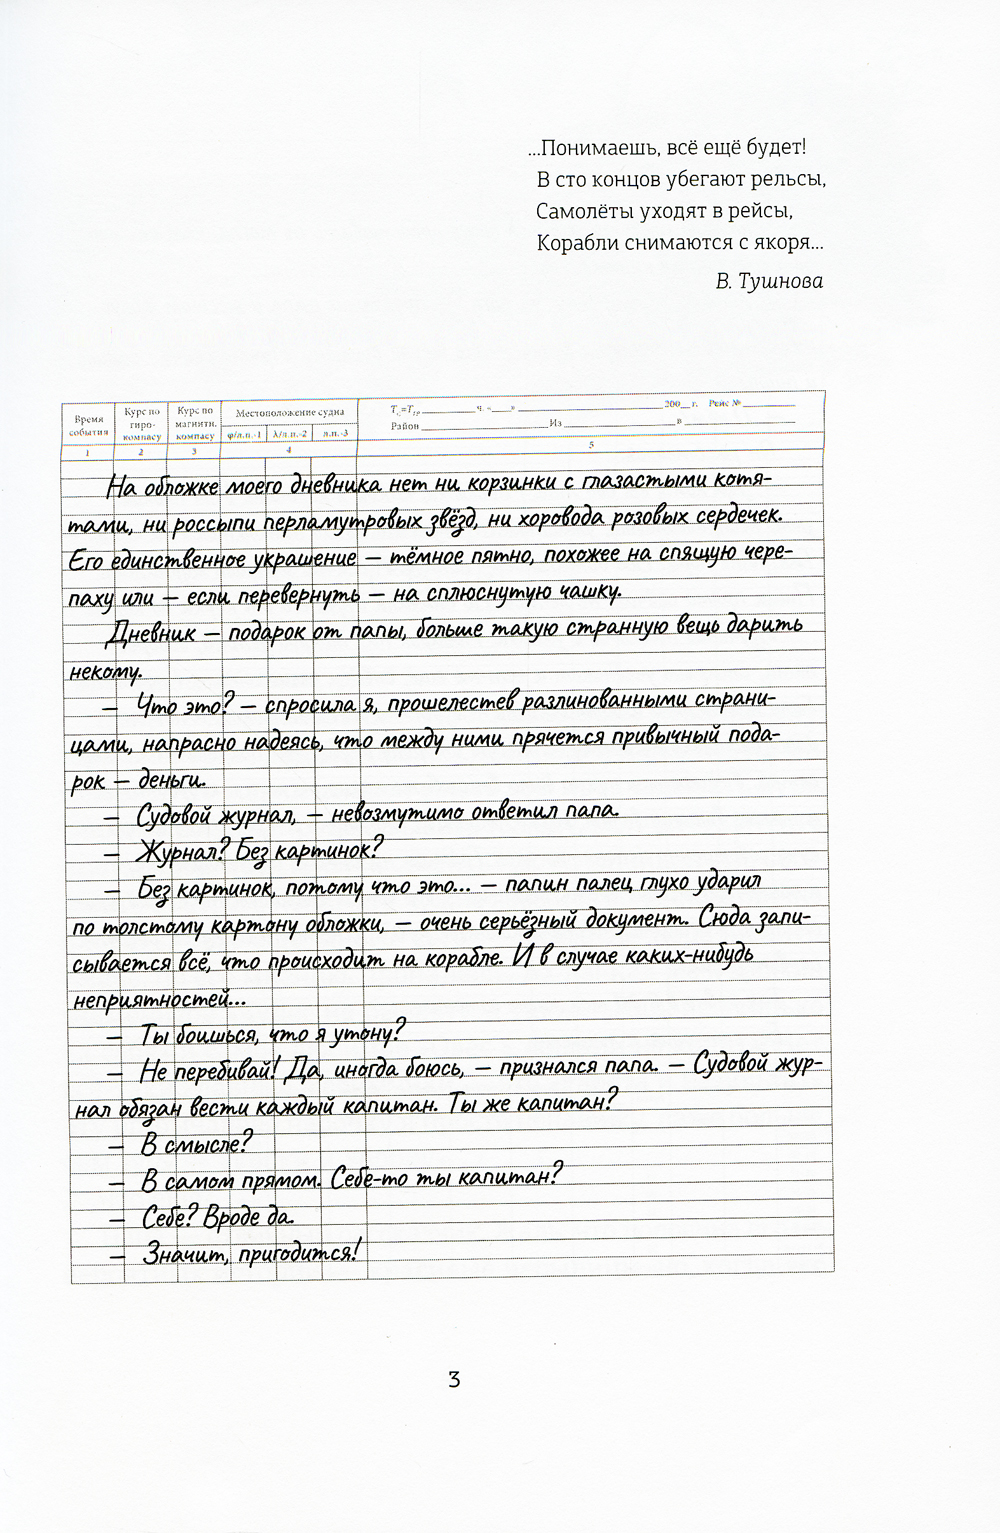 ...Понимаешь, всё ещё будет!
В сто концов убегают рельсы,
Самолёты уходят в рейсы,
Корабли снимаются с якоря...
В. Тушнова
Время события
Курс по гиро-компасу
Курс по магнитн. компасу
Местоположение судна
φ/л.п.-1 λ/л.п.-2 л.п.-3
ч. «___» ___ 200__ г. Рейс № ___
Район ___ Из ___ в ___
1 2 3 4 5
На обложке моего дневника нет ни корзинки с глазастыми котя-
тами, ни россыпи перламутровых звёзд, ни хоровода розовых сердечек.
Его единственное украшение — тёмное пятно, похожее на спящую чере-
паху или — если перевернуть — на сплюснутую чашку.
Дневник — подарок от папы, больше такую странную вещь дарить
некому.
— Что это? — спросила я, прошелестев разлинованными страни-
цами, напрасно надеясь, что между ними прячется привычный пода-
рок — деньги.
— Судовой журнал, — невозмутимо ответил папа.
— Журнал? Без картинок?
— Без картинок, потому что это... — папин палец глухо ударил
по толстому картону обложки, — очень серьёзный документ. Сюда запи-
сывается всё, что происходит на корабле. И в случае каких-нибудь
неприятностей...
— Ты боишься, что я утону?
— Не перебивай! Да, иногда боюсь, — признался папа. — Судовой жур-
нал обязан вести каждый капитан. Ты же капитан?
— В смысле?
— В самом прямом. Себе-то ты капитан?
— Себе? Вроде да.
— Значит, пригодится!
3